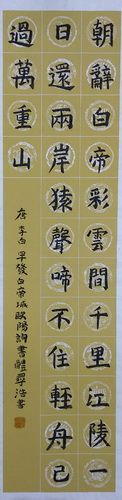 朝辭白帝彩雲間千里江陵一
日還兩岸猿聲啼不住輕舟已
過萬重山
唐李白早發白帝城歐陽詢書體翠浩書